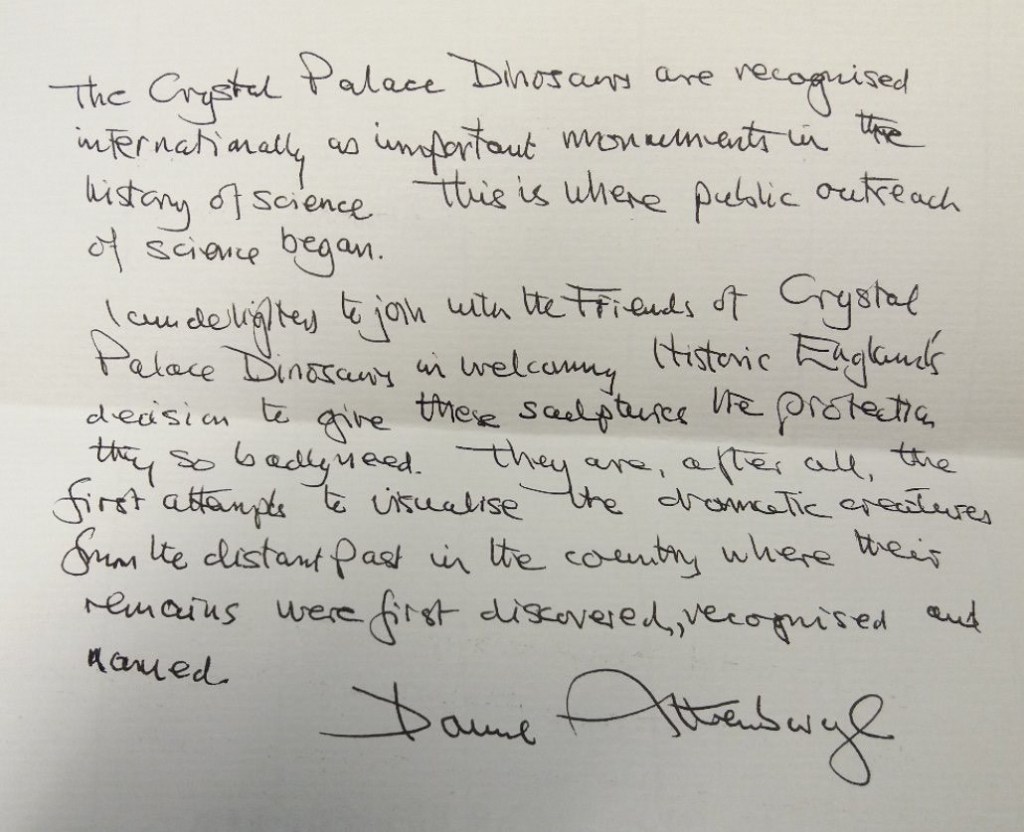 The Crystal Palace Dinosaurs are recognised
internationally as important monuments in the
history of science This is where public outreach
of science began.
I am delighted to join with the Friends of Crystal
Palace Dinosaurs in welcoming Historic England's
decision to give these sculptures the protection
they so badly need. They are, after all, the
first attempts to visualise the dramatic creatures
from the distant past in the country where their
remains were first discovered, recognised and
named.
David Attenborough